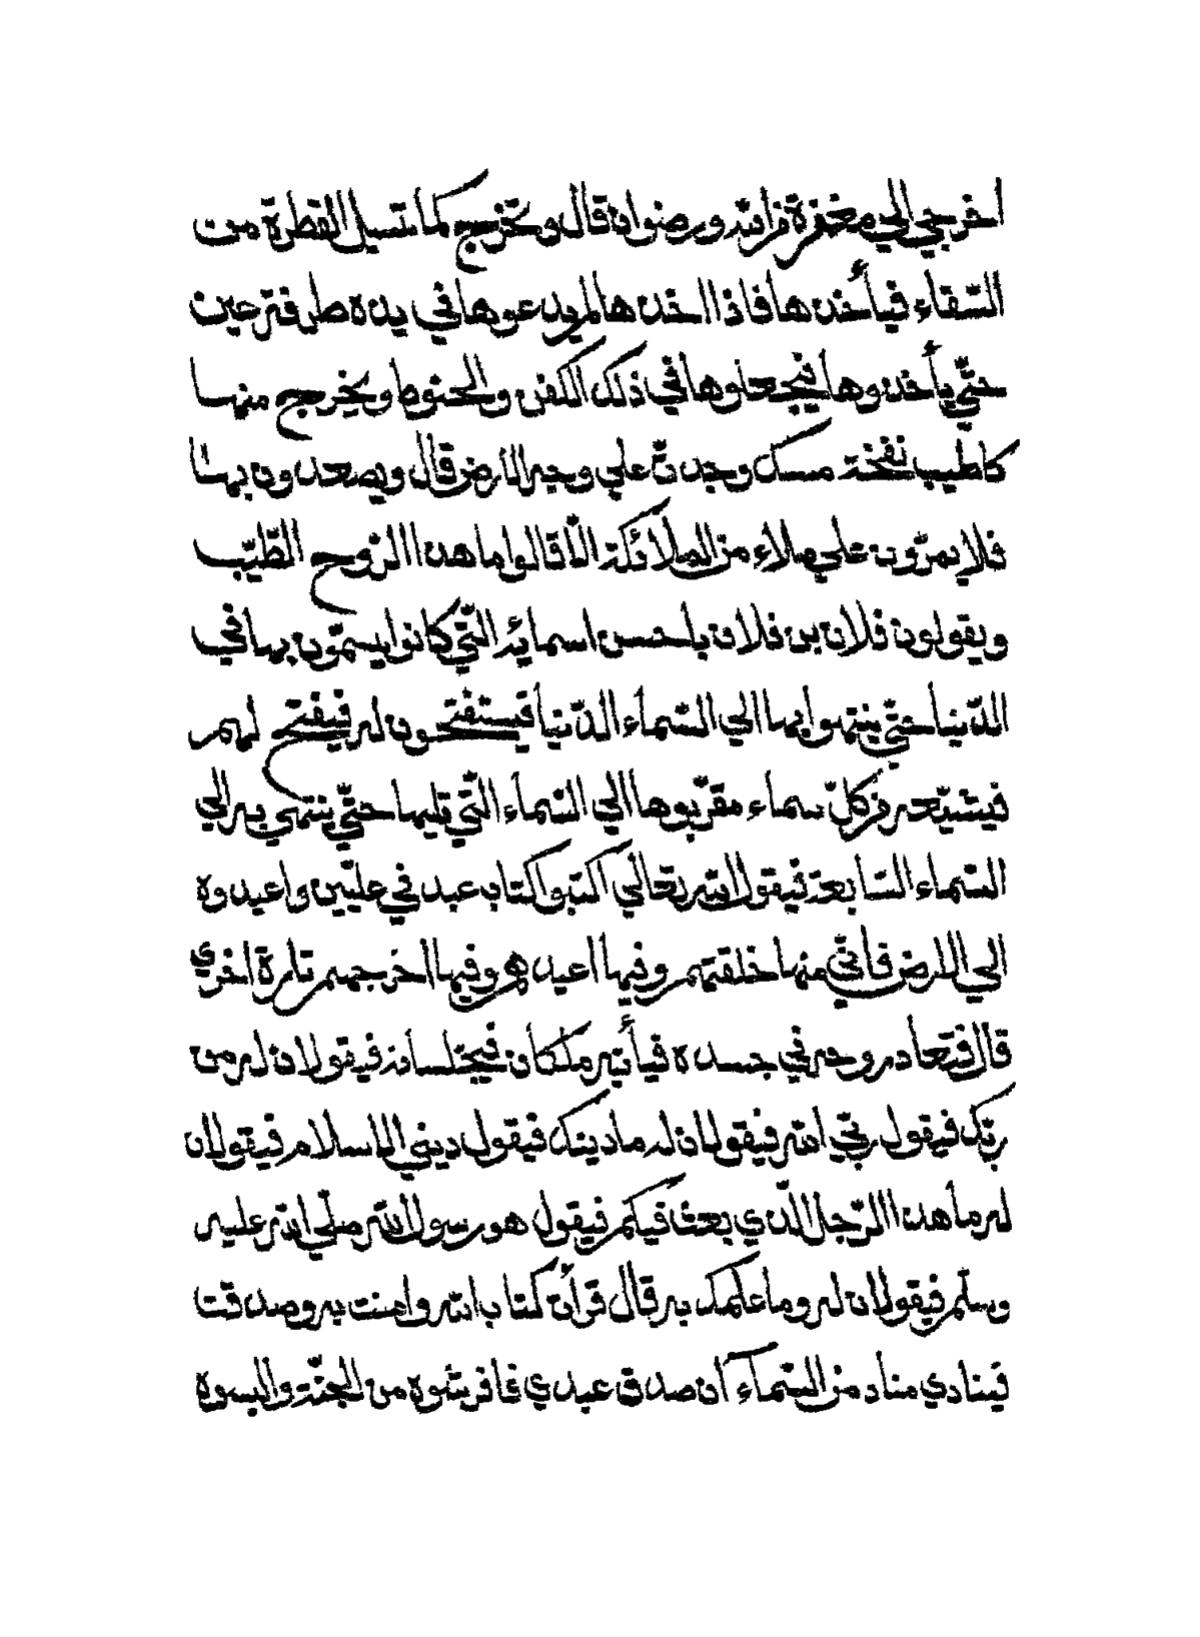 اخرجي الي مغفرة من الله ورضوان قال وتخرج كما تسيل القطرة من
السّقاء فيأخذها فاذا اخذها لم يدعوها في يده طرفة عين
حتّي يأخذوها فيجعلوها في ذلك الكفن والحنوط ويخرج منها
كاطيب نفخة مسك وجدتّ علي وجه الارض قال ويصعدون بها
فلا يمرّون علي ملاء من الملائكة الّا قالوا ما هذا الرّوح الطّيّب
ويقولون فلان بن فلان باحسن اسمائه الّتي كانوا يسمّون بها في
الدّنيا حتّي ينتهوا بها الي السّماء الدّنيا فيستفتحون له فيفتح لهم
فيشيّعه من كلّ سماء مقرّبوها الي السّماء الّتي تليها حتّي ينتهي به الي
السّماء السّابعة فيقول الله تعالي اكتبوا كتاب عبد في علّيين واعيدوه
الي الارض فأنّي منها خلقتهم وفيها اعيدهم وفيها اخرجهم تارة اخري
قال فتعاد روحه في جسده فيأتيه ملكان فيجلسانه فيقولان له من
ربّك فيقول ربّي الله فيقولان له ما دينك فيقول ديني الاسلام فيقولان
له ما هذا الرّجل الّذي بعث فيكم فيقول هو رسول الله صلّي الله عليه
وسلّم فيقولان له وما علمك به قال قرأن كتاب الله وامنت به وصدقت
فينادي مناد من السّماء أن صدق عبدي فافرشوه من الجنّة والبسوه